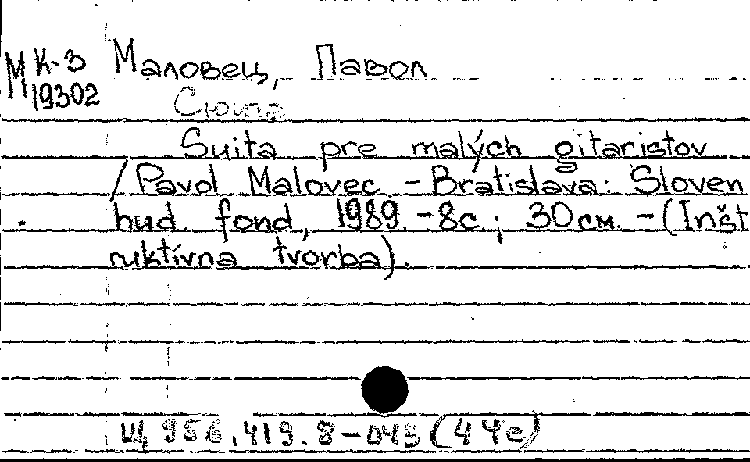 М К-3
19302
Маловец, Павол
Сюита
Suita pre malých gitaristov
/Pavol Malovec - Bratislava: Sloven
hud. fond, 1989. - 8с.; 30см. - (Inšt
ruktívna tvorba).
Щ 956.419.8-045 (4 Че)